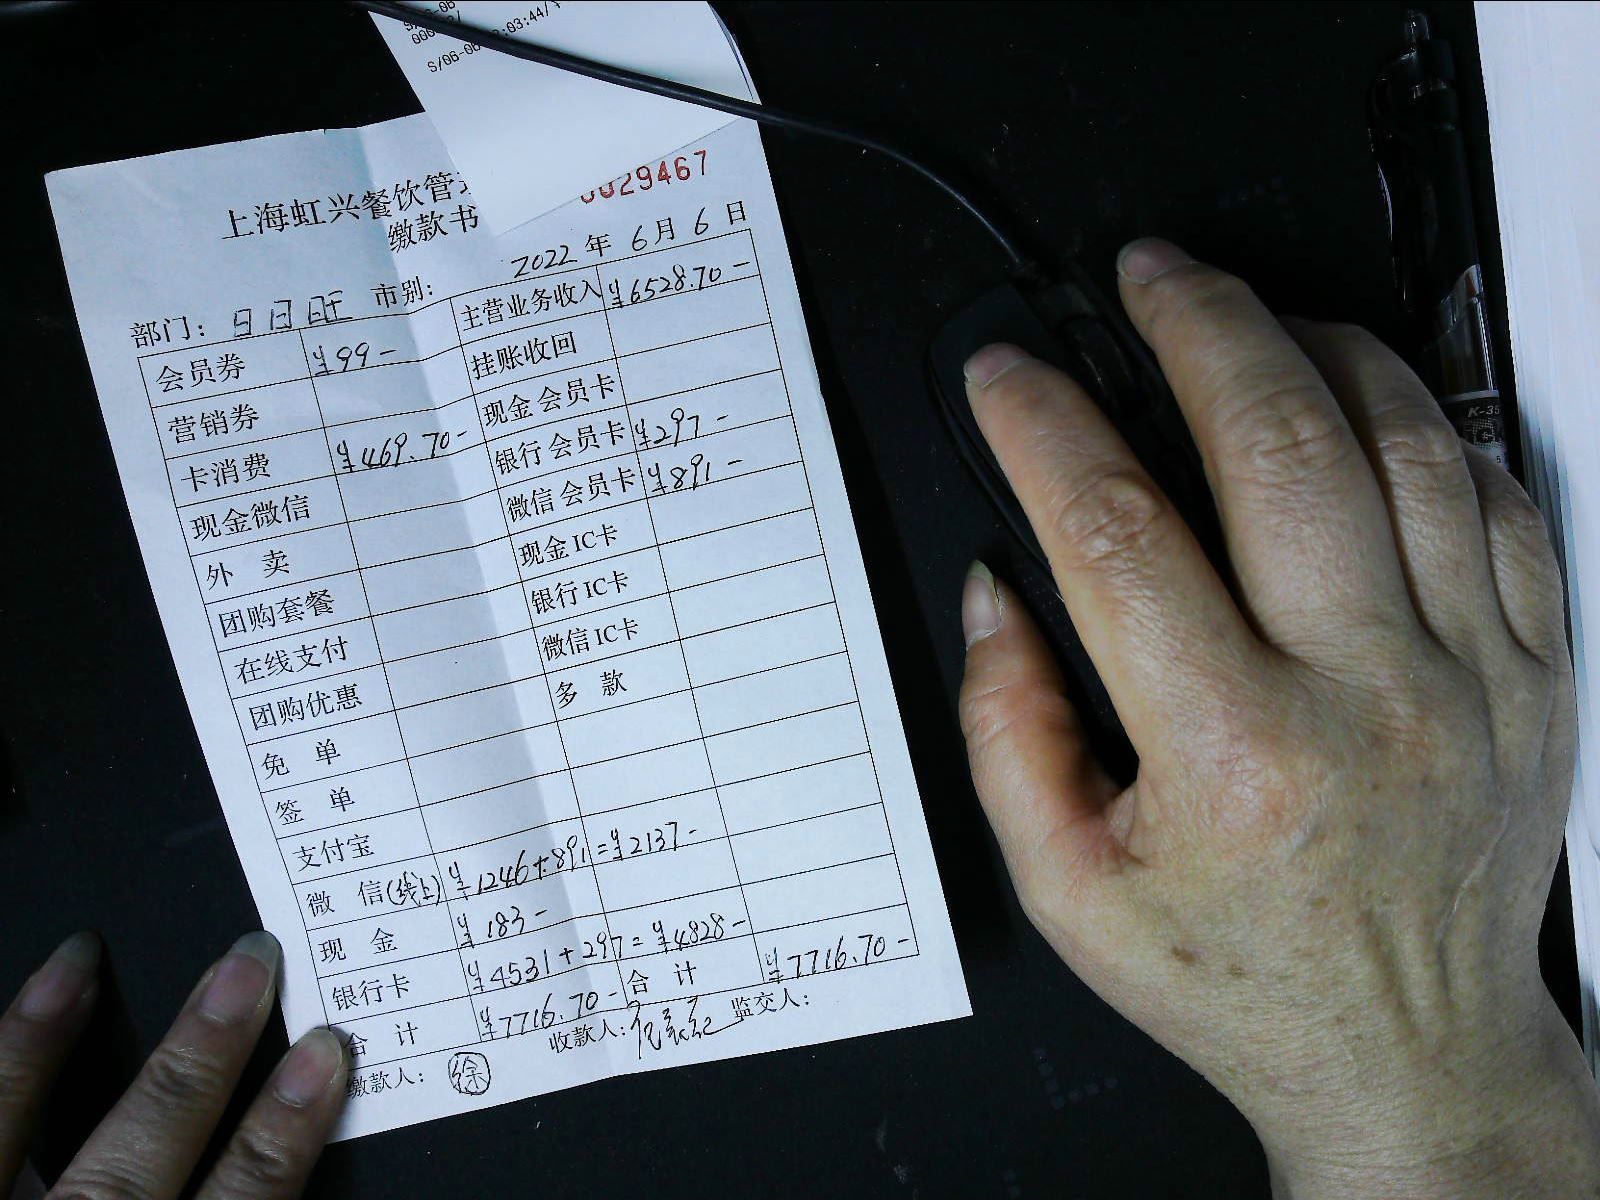 S/06-06
03:44/
上海虹兴餐饮管
缴款书
0029467
2022 年 6 月 6 日
部门: 日日旺 市别:
会员券 ¥99- 主营业务收入 ¥6528.70-
营销券 挂账收回
卡消费 ¥469.70- 现金会员卡
现金微信 银行会员卡 ¥297-
外 卖 微信会员卡 ¥891-
团购套餐 现金IC卡
在线支付 银行IC卡
团购优惠 微信IC卡
免 单 多 款
签 单
支付宝
微 信(线上) ¥1246+891=¥2137-
现 金 ¥183-
银行卡 ¥4531+297=¥4828-
合 计 ¥7716.70- 合 计 ¥7716.70-
缴款人: 徐 收款人: 监交人:
K-35